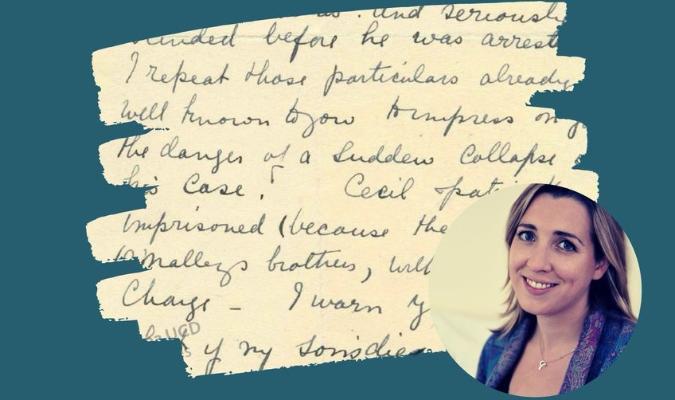 . and seriously
wounded before he was arrest
I repeat those particulars already
well known to you to impress on y
the danger of a sudden collapse
his case. Cecil
imprisoned (because the
O'Malleys brothers, will
Charge - I warn y
UCD
if my sons die